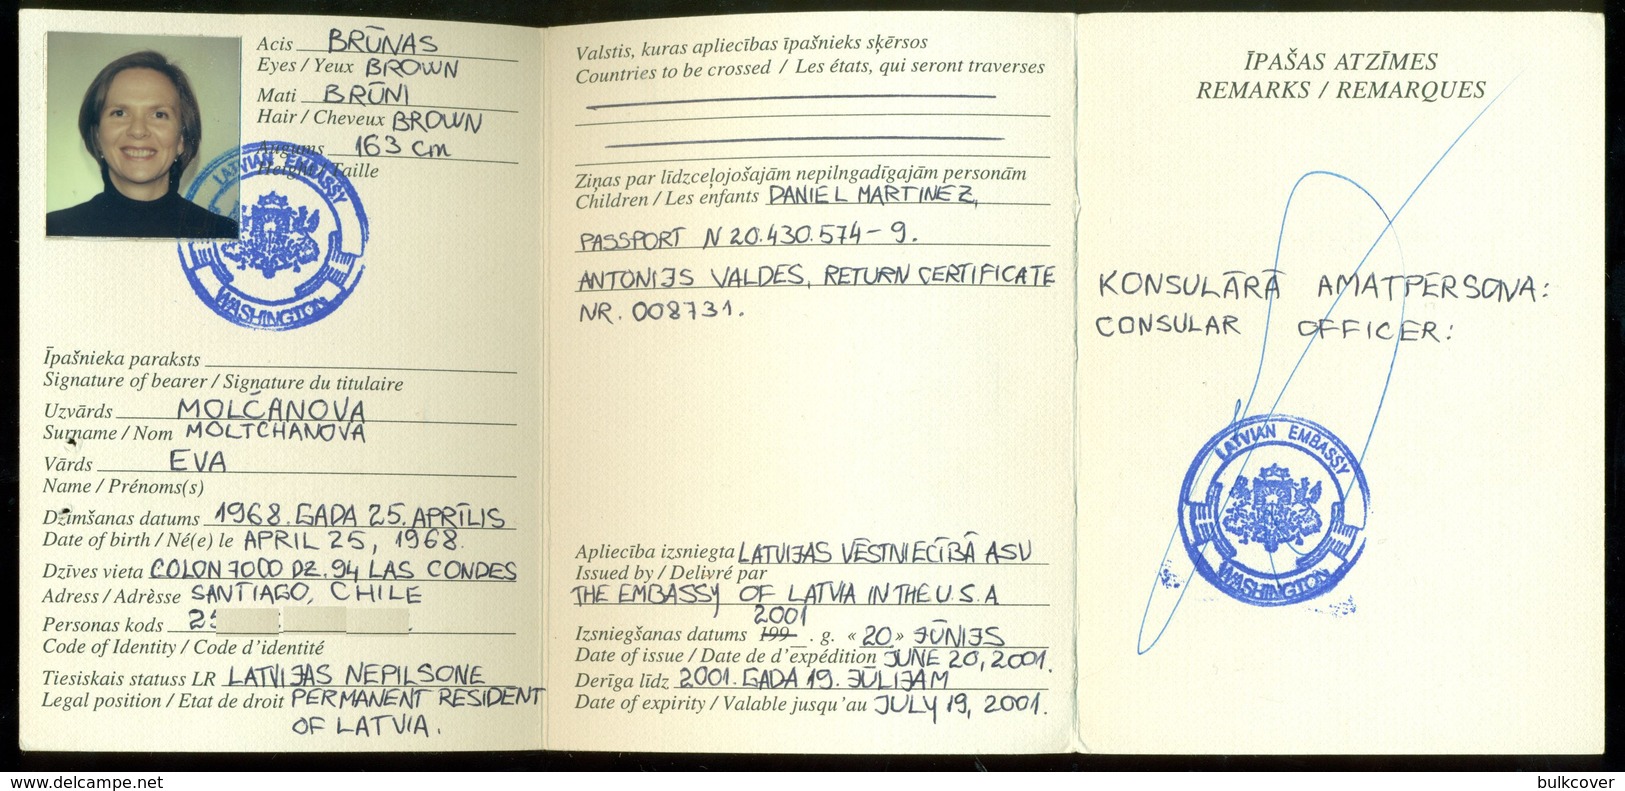 Acis BRŪNAS
Eyes / Yeux BROWN
Mati BRŪNI
Hair / Cheveux BROWN
Augums 163 cm
Height / Taille
LATVIAN EMBASSY
WASHINGTON
Īpašnieka paraksts
Signature of bearer / Signature du titulaire
Uzvārds MOLČANOVA
Surname / Nom MOLTCHANOVA
Vārds EVA
Name / Prénoms(s)
Dzimšanas datums 1968. GADA 25. APRĪLIS
Date of birth / Né(e) le APRIL 25, 1968.
Dzīves vieta COLON 7000 DZ. 94 LAS CONDES
Adress / Adrèsse SANTIAGO, CHILE
Personas kods 25
Code of Identity / Code d'identité
Tiesiskais statuss LR LATVIJAS NEPILSONE
Legal position / Etat de droit PERMANENT RESIDENT
OF LATVIA.
Valstis, kuras apliecības īpašnieks šķērsos
Countries to be crossed / Les états, qui seront traverses
Ziņas par līdzceļojošajām nepilngadīgajām personām
Children / Les enfants DANIEL MARTINEZ,
PASSPORT N 20.430.574-9.
ANTONIJS VALDES, RETURN CERTIFICATE
NR. 008731.
Apliecība izsniegta LATVIJAS VĒSTNIECĪBĀ ASV
Issued by / Delivré par
THE EMBASSY OF LATVIA IN THE U.S.A
2001
Izsniegšanas datums 199 . g. « 20 » JŪNIJS
Date of issue / Date de d'expédition JUNE 20, 2001.
Derīga līdz 2001. GADA 19. JŪLIJAM
Date of expirity / Valable jusqu'au JULY 19, 2001.
ĪPAŠAS ATZĪMES
REMARKS / REMARQUES
KONSULĀRĀ AMATPERSONA:
CONSULAR OFFICER:
LATVIAN EMBASSY
WASHINGTON
www.delcampe.net
bulkcover